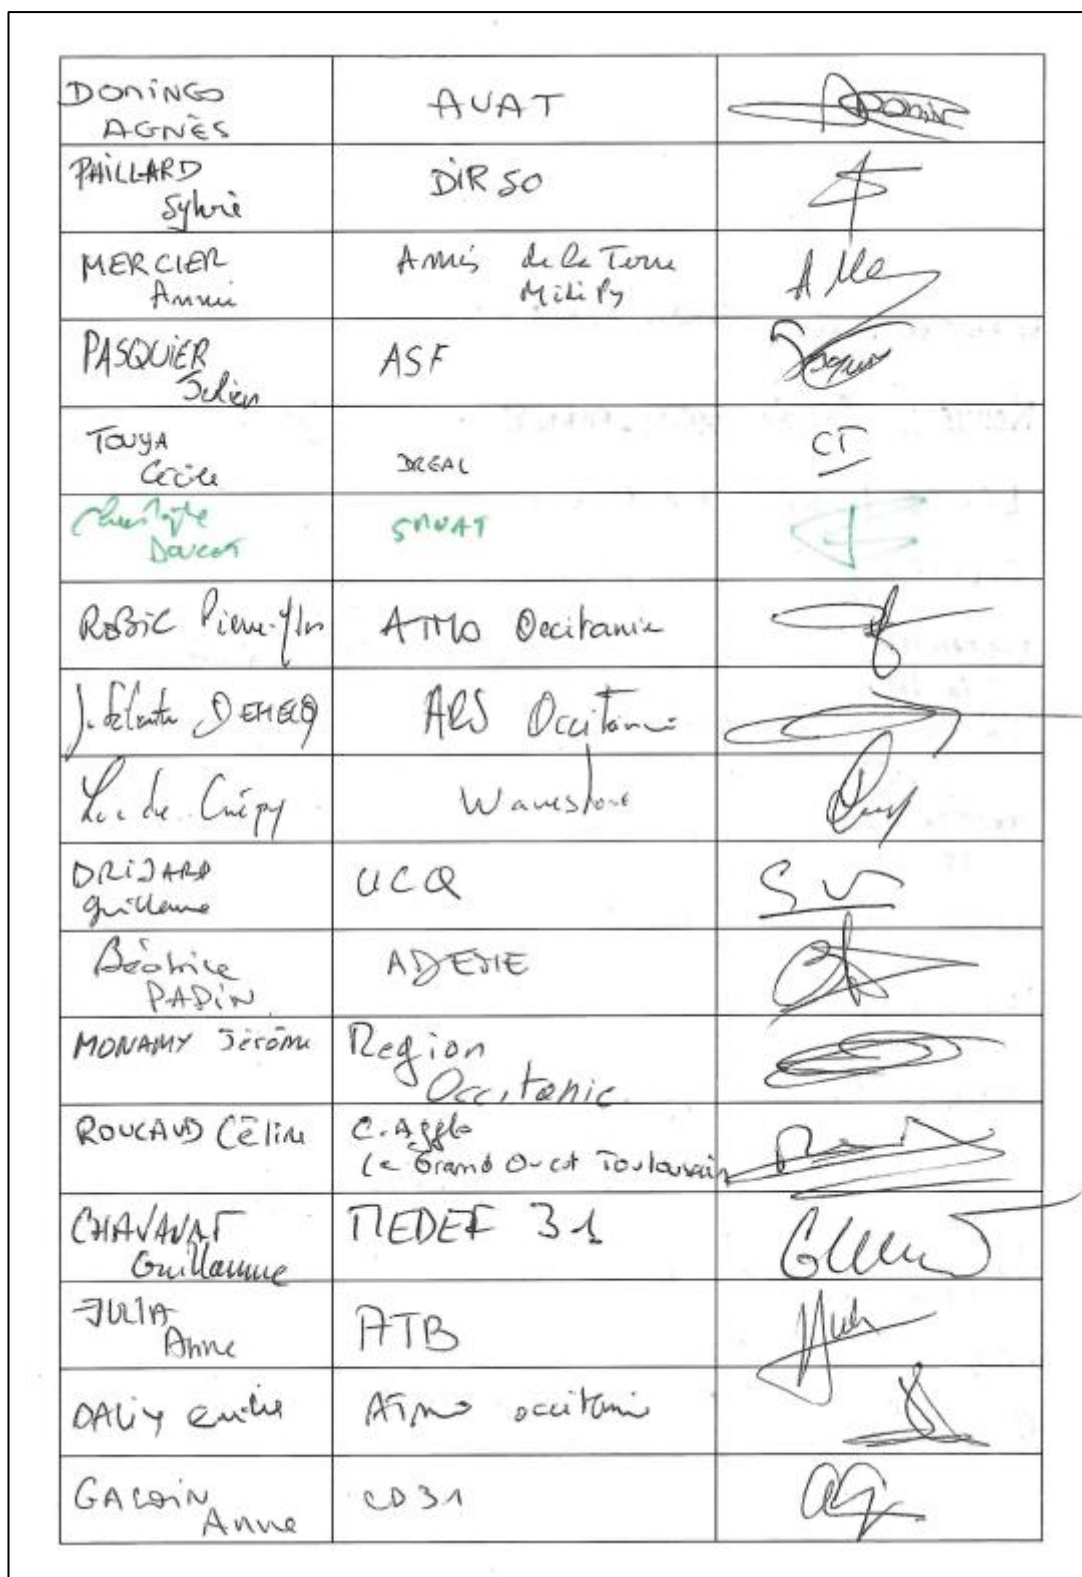 DOMINGO
AGNÈS
AUAT
PAILLARD
Sylvie
DIR SO
MERCIER
Annie
Amis de la Terre
Midi Py
PASQUIER
Julien
ASF
TOUYA
Cécile
DREAL
CT
Christophe
Doucet
SMUAT
ROBIC Pierre-Yves
ATMO Occitanie
DEHECQ
ARS Occitanie
Luc de Crépy
Wavestone
DRIJARD
Guillaume
UCQ
Béatrice
PADIN
MONAMY Jérôme
Region
Occitanie
ROUCAUD Céline
C. Agglo
Le Grand Ouest Toulousain
CHAVANAT
Guillaume
MEDEF 31
JULIA
Anne
ATB
DALIY Emilie
ATMO occitanie
Anne
CD31